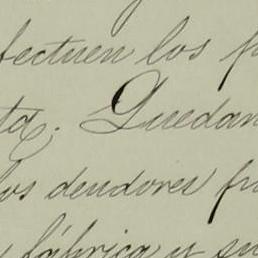 fectuen los p
ta. Quedan
los deudores fr
fábrica y su